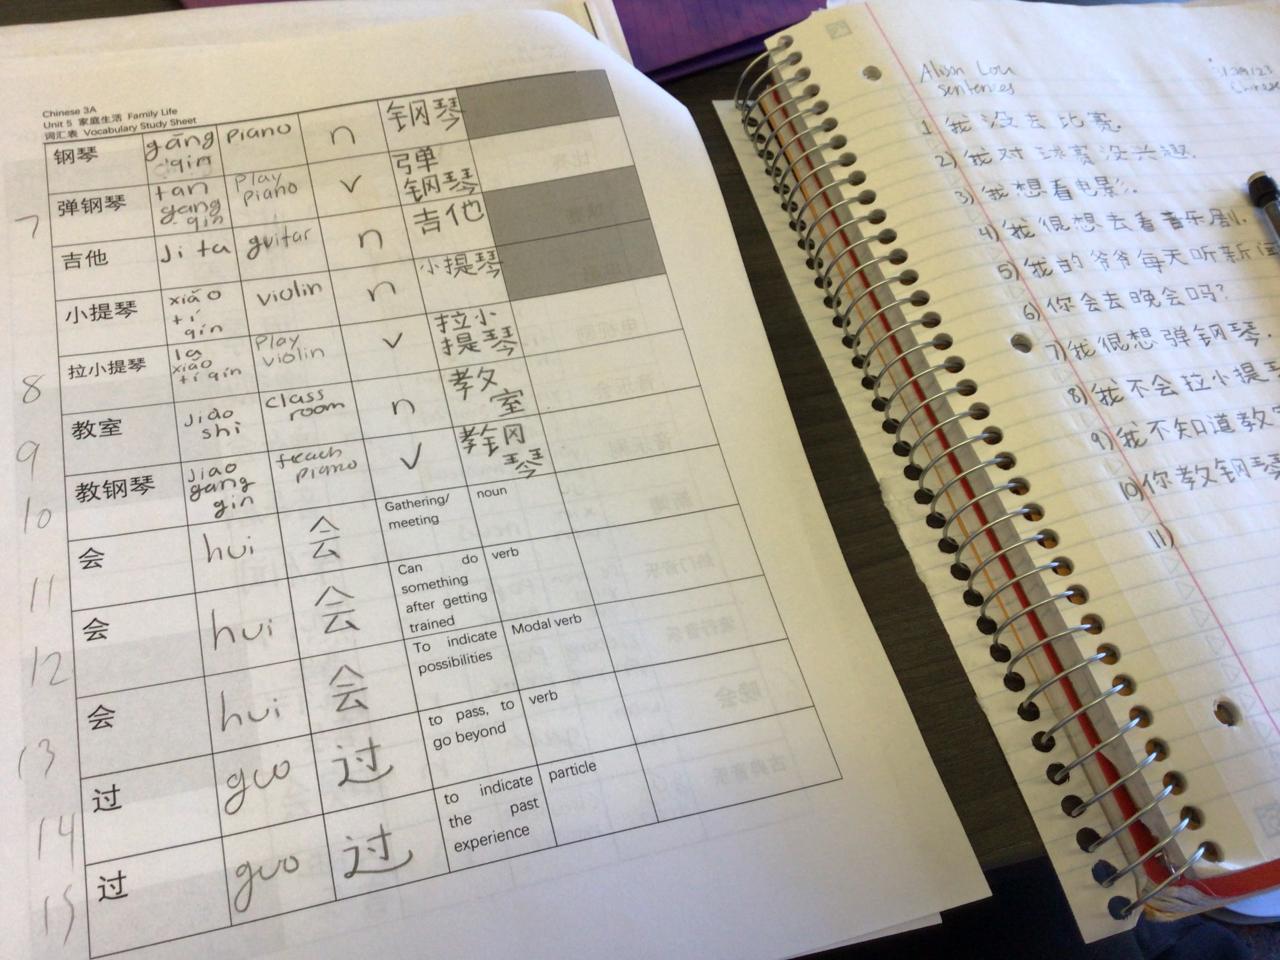 Chinese 3A
Unit 5 家庭生活 Family Life
词汇表 Vocabulary Study Sheet
钢琴 gāng qin piano n 钢琴
7 弹钢琴 tan gang qin play piano v 弹钢琴
吉他 Ji ta guitar n 吉他
小提琴 xiǎo tí qin violin n 小提琴
8 拉小提琴 la xiǎo tí qin play violin v 拉小提琴
9 教室 jiao shi class room n 教室
10 教钢琴 jiao gang qin teach piano v 教钢琴
11 会 hui 会 Gathering/ meeting noun
12 会 hui 会 Can do something after getting trained verb
13 会 hui 会 To indicate possibilities Modal verb
14 过 guo 过 to pass, to go beyond verb
15 过 guo 过 to indicate the past experience particle
Alison Lou
sentences
1 我没去比赛.
2) 我对球赛没兴趣.
3) 我想看电影.
4) 我很想去看音乐剧.
5) 我的爷爷每天听新闻
6) 你会去晚会吗?
7) 我很想弹钢琴.
8) 我不会拉小提琴
9) 我不知道教室
10) 你教钢琴
11)